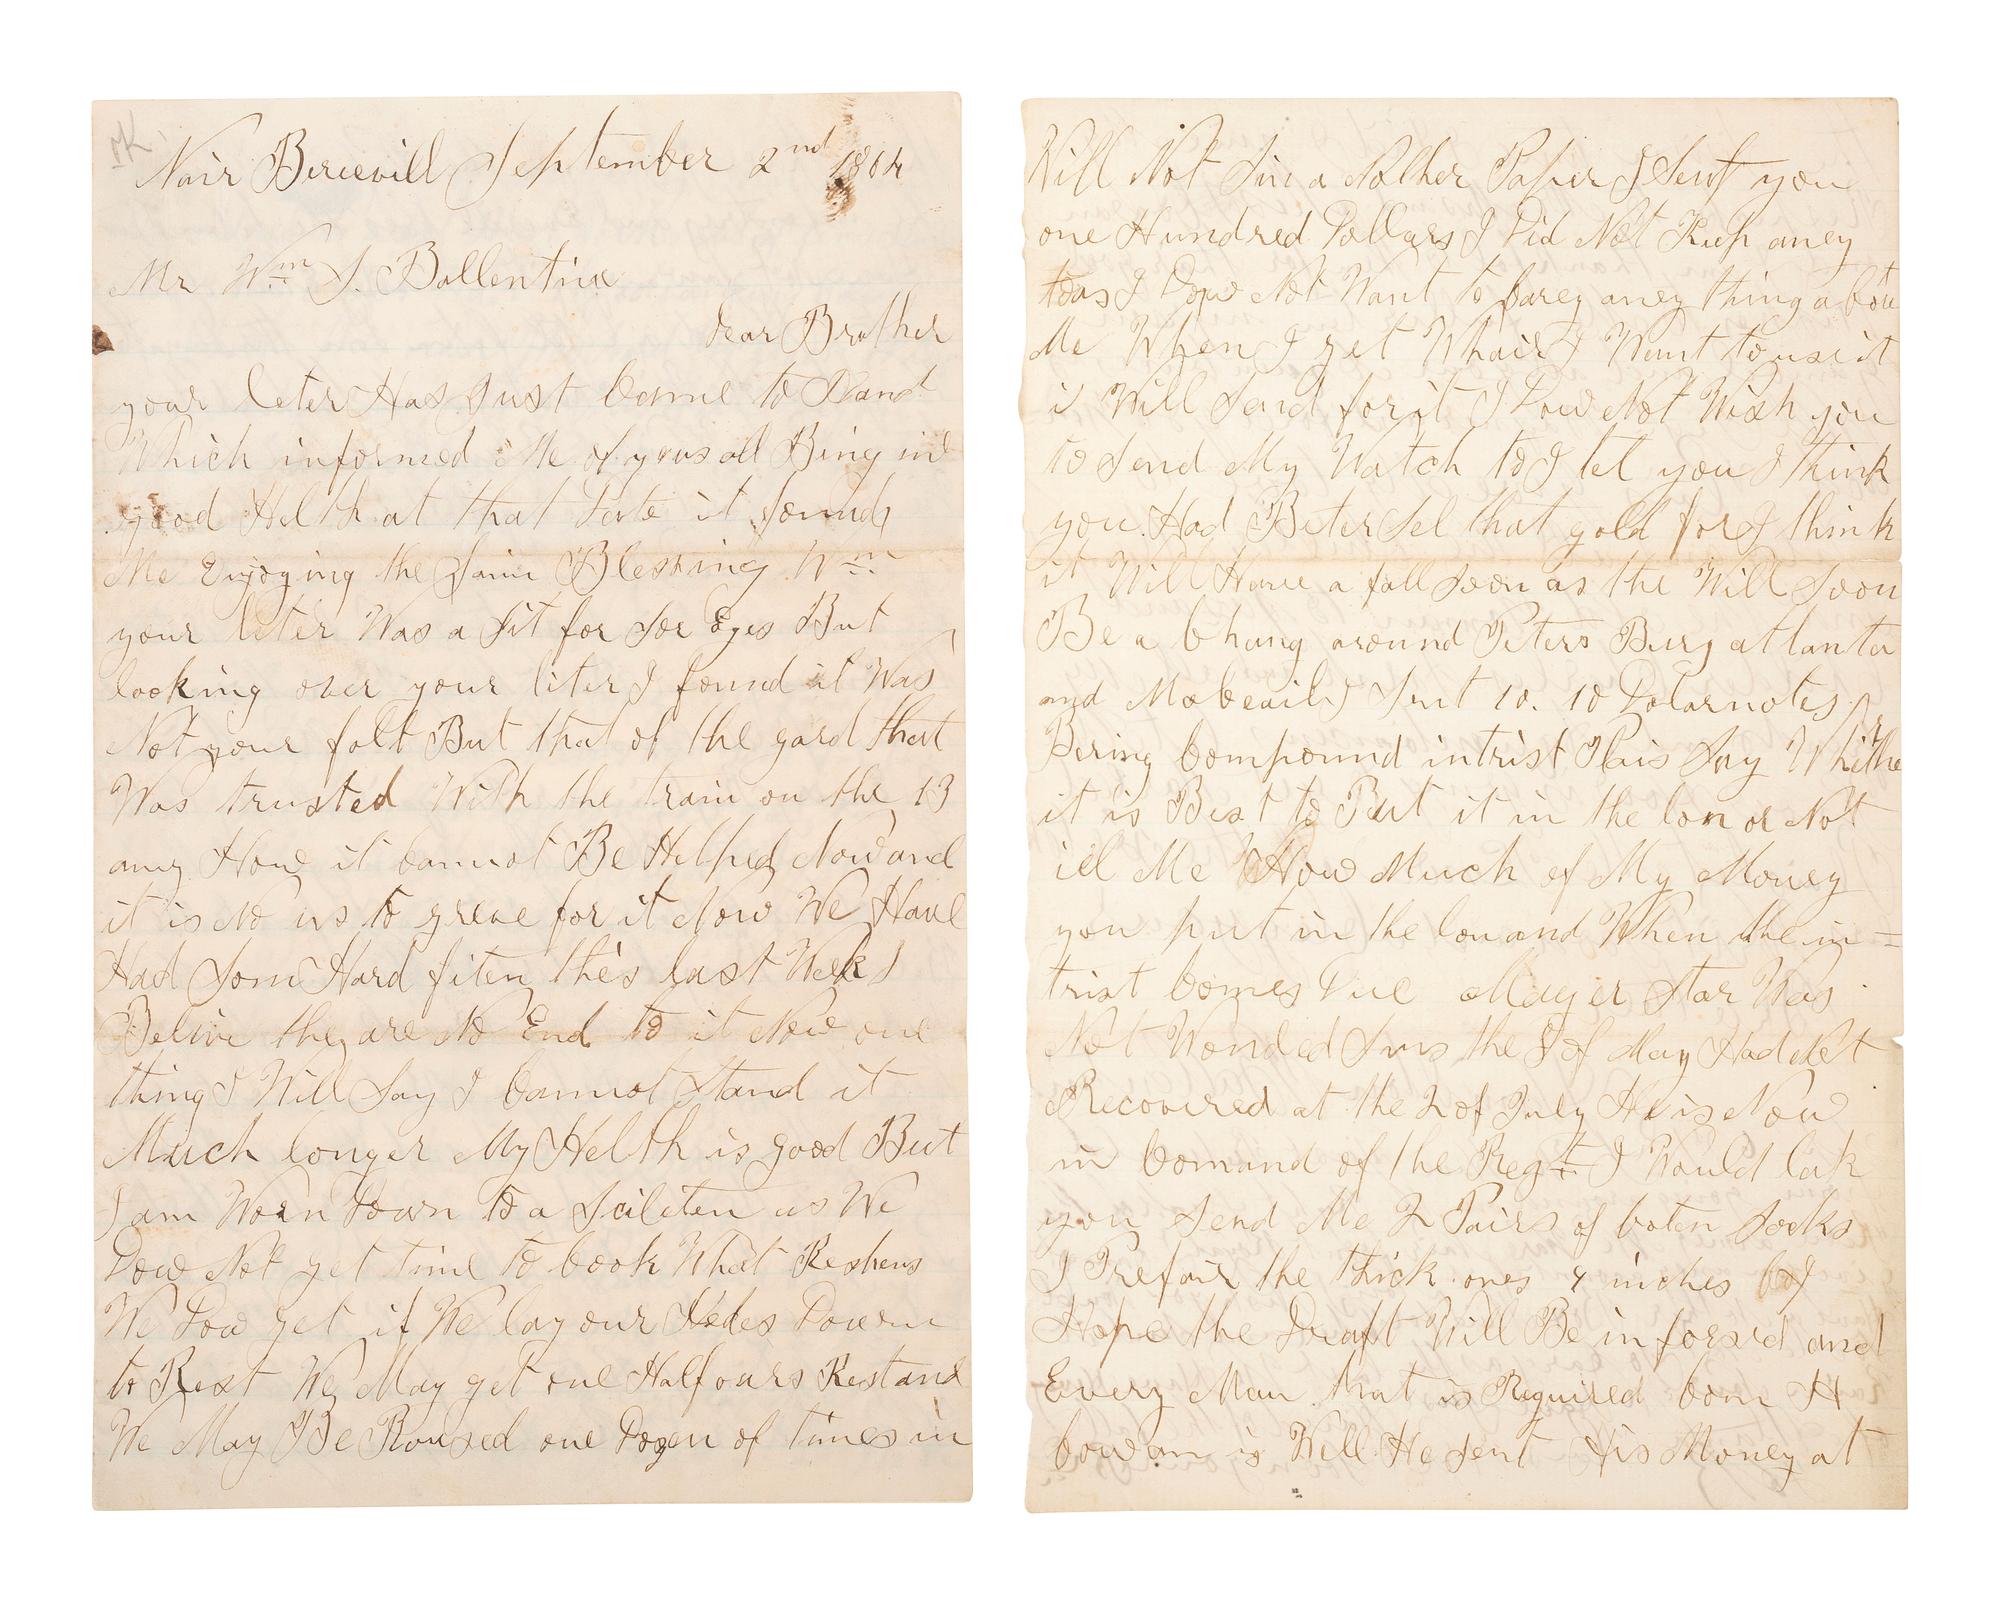 Nair Bereievill September 2nd 1864
Mr Wm S. Ballentine
dear Brother
your leter Has Just Come to Hand
Which informed Me of yous all Bing in
good Helth at that Date it found
Me Enjoying the Saim Blessing Wm
your leter Was a Sit for Sor Eyes But
looking over your leter I found it Was
Not your folt But that of the gard that
Was trusted With the train on the 13
any How it Cannot Be Helped Now and
it is No us to greve for it Now We Have
Had Som Hard fiten this last Week I
Belive they are No End to it Now one
thing I Will Say I Cannot Stand it
Much longer My Helth is good But
I am Worn Down to a Sciliten as We
Dow Not get time to Cook What Reshens
We Dow get if We lay our Hedes Dowen
to Rest We May get one Half ours Rest and
We May Be Roused one Dozen of times in
Will Not Sin a Nother Paper I Sent you
one Hundred Dollars I Did Not Keep aney
as I Dow Not Want to Carey aney thing a bou
Me When I get Whair I Want to use it
i Will Send for it I Dow Not Wish you
to Send My Watch to I tel you I think
you Had Beter Sel that gold for I think
it Will Have a fall Soon as the Will Soon
Be a Chang around Peters Burg atlanta
and Mobeail I Sent 10. 10 Dolar notes
Bering Compound intrist Plais Say Whithe
it is Best to Put it in the lon or Not
tel Me How Much of My Money
you put in the lon and When the in=
trist Comes Due Mayer Star Was
Not Wonded Sins the 8 of May Had Not
Recovered at the 2 of July He is Now
in Comand of the Regt I Would lik
you Send Me 2 Pairs of Coten Socks
I Prefair the thick ones 9 inches I
Hope the Draft Will Be in forsed and
Every Man that is Required Com H
Cowan is Well He Sent His Money at